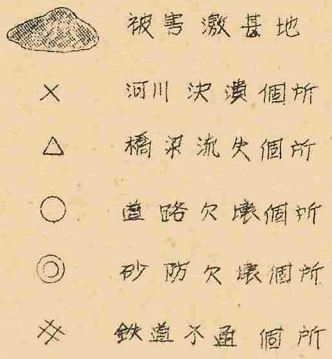 被害激甚地
河川決潰個所
橋梁流失個所
道路欠壊個所
砂防欠壊個所
鉄道不通個所